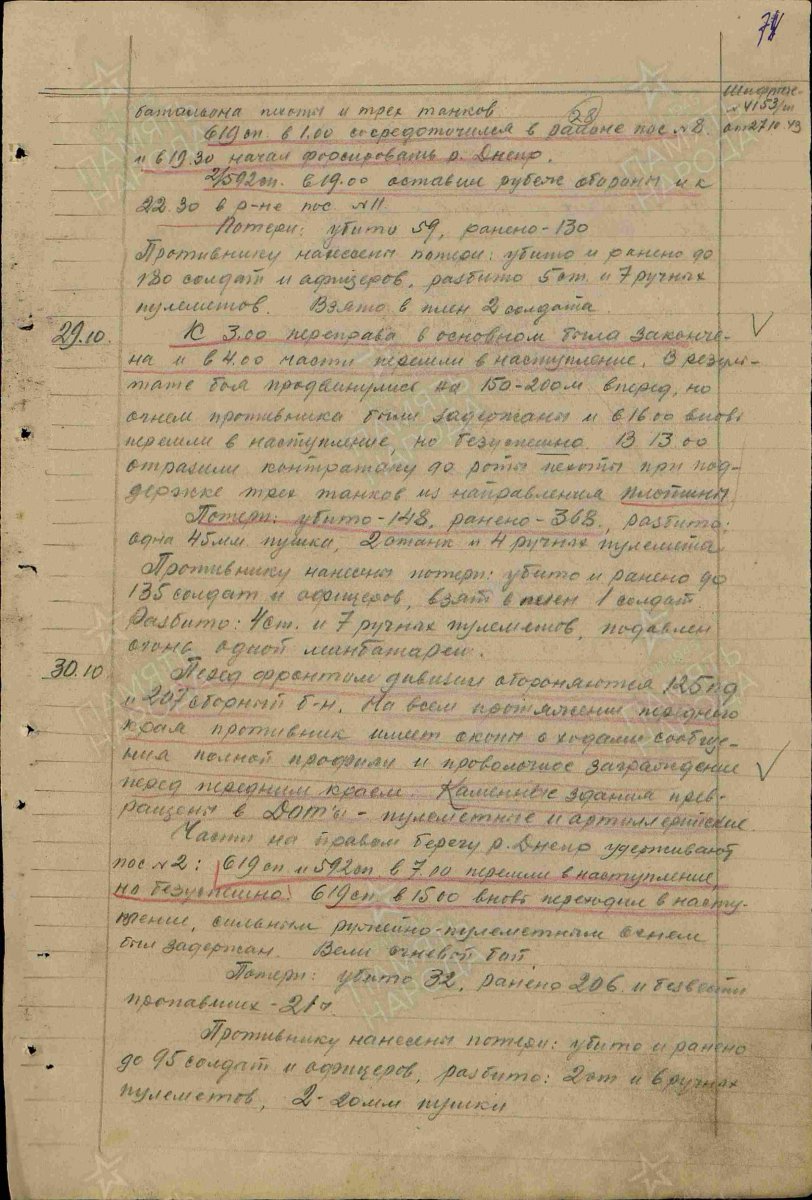 74
Шифротел.
№ 4153/ш
от 27.10.43
баталиона пихоты и трех танков
28
619 сп. в 1.00 сосредоточился в районе пос №8.
и в 19.30 начал форсировать р. Днепр.
2/592 сп. в 19.00 оставил рубеж обороны и к
22.30 в р-не пос №11.
Потери: убито 59, ранено-130
Противнику нанесены потери: убито и ранено до
180 солдат и офицеров, разбито 5 ст. и 7 ручных
пулеметов. Взято в плен 2 солдата.
29.10. К 3.00 переправа в основном была законче-
на и в 4.00 части перешли в наступление. В резуль-
тате боя продвинулись на 150-200м вперед, но
огнем противника были задержаны и в 16.00 вновь
перешли в наступление, но безуспешно. В 13.00
отразили контратаку до роты пехоты при под-
держке трех танков из направления плотины.
Потери: убито-148, ранено-368, разбито:
одна 45мм пушка, 2 станк и 4 ручных пулемета.
Противнику нанесены потери: убито и ранено до
135 солдат и офицеров, взят в плен 1 солдат
Разбито: 4 ст. и 7 ручных пулеметов, подавлен
огонь одной минбатареи.
30.10 Перед фронтом дивизии обороняются 125 пд
и 207 сборный б-н. На всем протяжении переднего
края противник имеет окопы с ходами сообще-
ния полной профили и проволочное заграждение
перед передним краем. Каменные здания прев-
ращены в Дот'ы - пулеметные и артиллерийские.
Части на правом берегу р. Днепр удерживают
пос №2: 619 сп и 592 сп в 7.00 перешли в наступление,
но безуспешно. 619 сп. в 15.00 вновь переходил в насту-
пление, сильным ружейно-пулеметным огнем
был задержан. Вели огневой бой
Потери: убито 32, ранено 206 и безвести
пропавших - 21ч.
Противнику нанесены потери: убито и ранено
до 95 солдат и офицеров, разбито: 2 ст и 8 ручных
пулеметов, 2- 20мм пушки
ПАМЯТЬ
НАРОДА